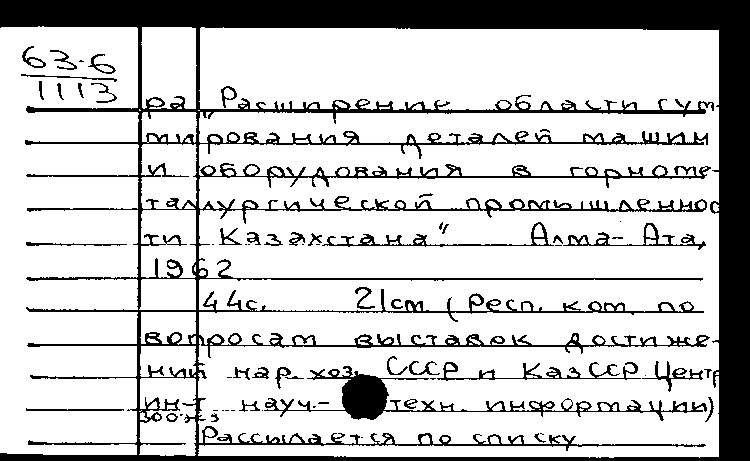 63-6
1113
ра „Расширение области гум-
мирования деталей машин
и оборудования в горноме-
таллургической промышленнос
ти Казахстана". Алма-Ата,
1962
44с. 21см (Респ. ком. по
вопросам выставок достиже-
ний нар. хоз. СССР и КазССР Центр
ин-т науч.- техн. информации)
300экз
Рассылается по списку